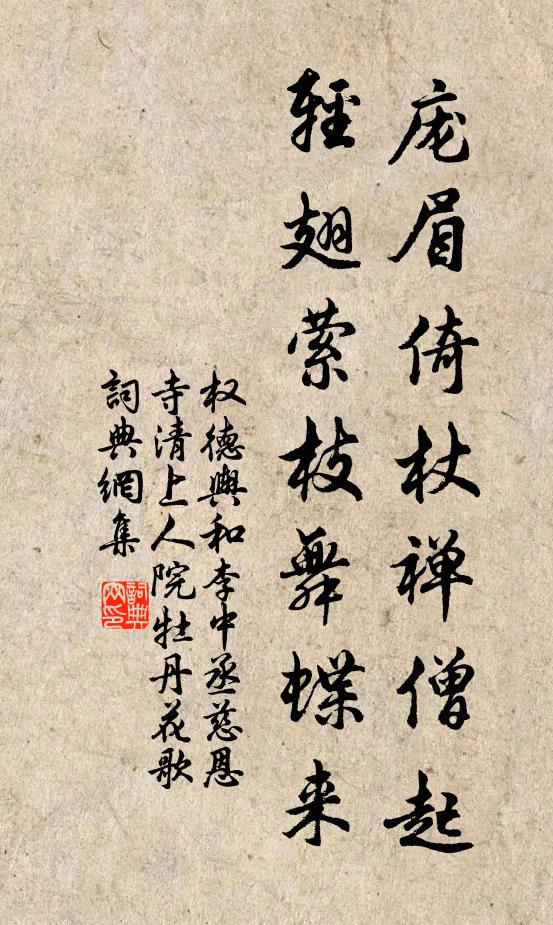 庞眉倚杖禅僧起
轻翅萦枝舞蝶来
权德舆和李中丞慈恩
寺清上人院牡丹花歌
詞典網集
詞典
网印